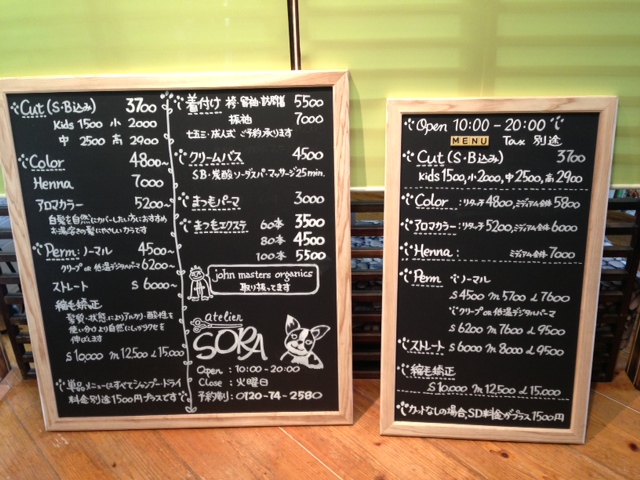 Cut (S・B込み) 3700
Kids 1500 小 2000
中 2500 高 2900
Color 4800~
Henna 7000
アロマカラー 5200~
白髪を自然にカバーしたい方におすすめ
お湯溶きの髪にやさしいカラーです
Perm:ノーマル 4500~
クリープ or 低温デジタルパーマ 6200~
ストレート S 6000~
縮毛矯正
髪質・状態によりアルカリ・酸性を
使い分けより自然にしっかりクセを
伸ばします
S 10,000 M 12,500 L 15,000
単品メニューはすべてシャンプー・ドライ
料金別途1500円プラスです
着付け 袴・留袖・訪問着 5500
振袖 7000
七五三・成人式 ご予約承ります
クリームバス 4500
SB・炭酸ソーダスパ・マッサージ25min.
まつ毛パーマ 3000
まつ毛エクステ 60本 3500
80本 4500
100本 5500
john masters organics
取り扱ってます
atelier
SORA
Open : 10:00-20:00
Close : 火曜日
予約制 : 0120-74-2580
Open 10:00-20:00
MENU Tax 別途
Cut (S・B込み) 3700
Kids 1500, 小2000, 中2500, 高2900
Color : リタッチ 4800, ミディアム全体 5800
アロマカラー : リタッチ 5200, ミディアム全体 6000
Henna : ミディアム全体 7000
Perm ノーマル
S 4500 M 5700 L 7600
クリープ or 低温デジタルパーマ
S 6200 M 7600 L 9500
ストレート S 6000 M 8000 L 9500
縮毛矯正
S 10,000 M 12,500 L 15,000
カットなしの場合、SD料金がプラス1500円